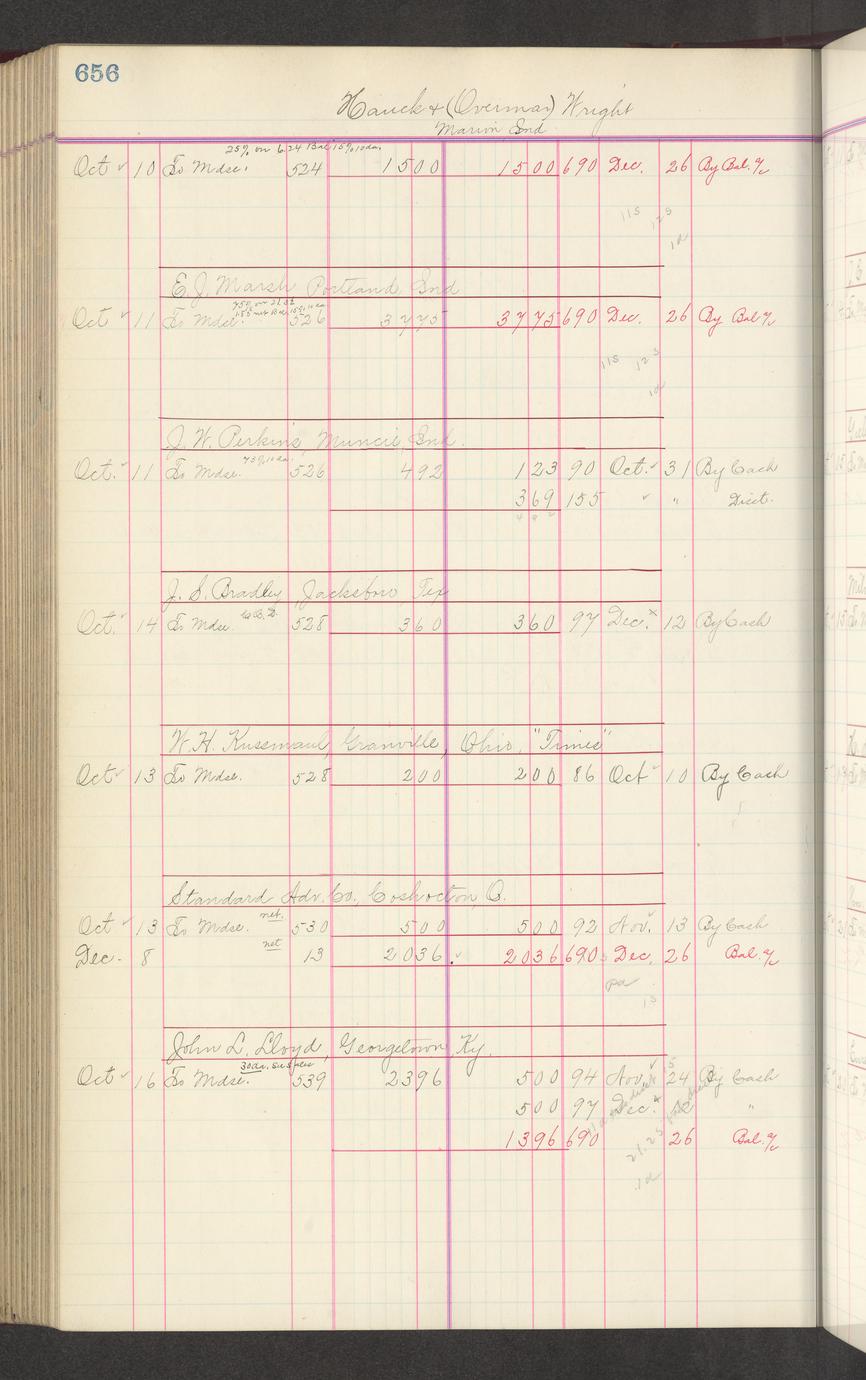 656
Hauck & (Overman) Wright
Marion Ind
25% on 6.24 Bal 15% 10 da.
Oct ✓ 10 To Mdse. 524 1500 1500 690 Dec. 26 By Bal. %
115 123
1d
E. J. Marsh Portland Ind
Oct ✓ 11 To Mdse. 526 3775 3775 690 Dec. 26 By Bal %
115 123
1d
J. W. Perkins, Muncie, Ind.
Oct. ✓ 11 To Mdse. 526 492 123 90 Oct. ✓ 31 By Cash
369 155 ✓ " Disct.
492
J. S. Bradley, Jacksboro, Tex
Oct. ✓ 14 To Mdse. C.O.D. 528 360 360 97 Dec. x 12 By Cash
W. H. Kussmaul, Granville, Ohio, "Times"
Oct ✓ 13 To Mdse. 528 200 200 86 Oct ✓ 10 By Cash
Standard Adv. Co., Coshocton, O.
Oct ✓ 13 To Mdse. net. 530 500 500 92 Nov. ✓ 13 By Cash
Dec. 8 net 13 2036 ✓ 2036 690 Dec. 26 Bal. %
pd
13
John L. Lloyd, Georgetown, Ky.
Oct ✓ 16 To Mdse. 30 da. 539 2396 500 94 Nov. ✓ 24 By Cash
500 97 Dec. 12 "
1396 690 26 Bal. %
1d